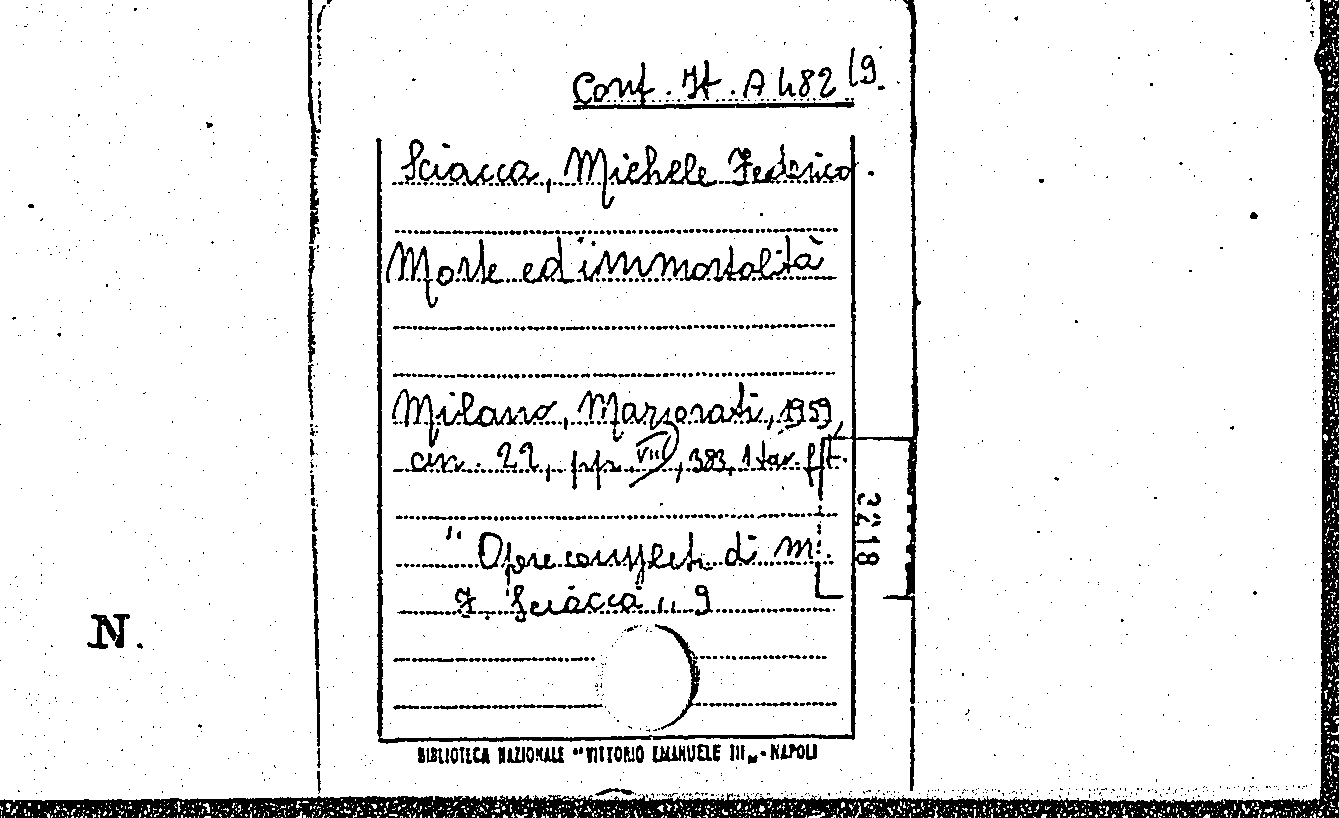 Conf. It. A 482 (9.
Sciacca, Michele Federico.
Morte ed immortalità
Milano, Marzorati, 1959
cm. 22, pp. VIII, 383, 1 tav. f/t.
3218
"Opere complete di M.
F. Sciacca", 9
N.
BIBLIOTECA NAZIONALE "VITTORIO EMANUELE III„ - NAPOLI